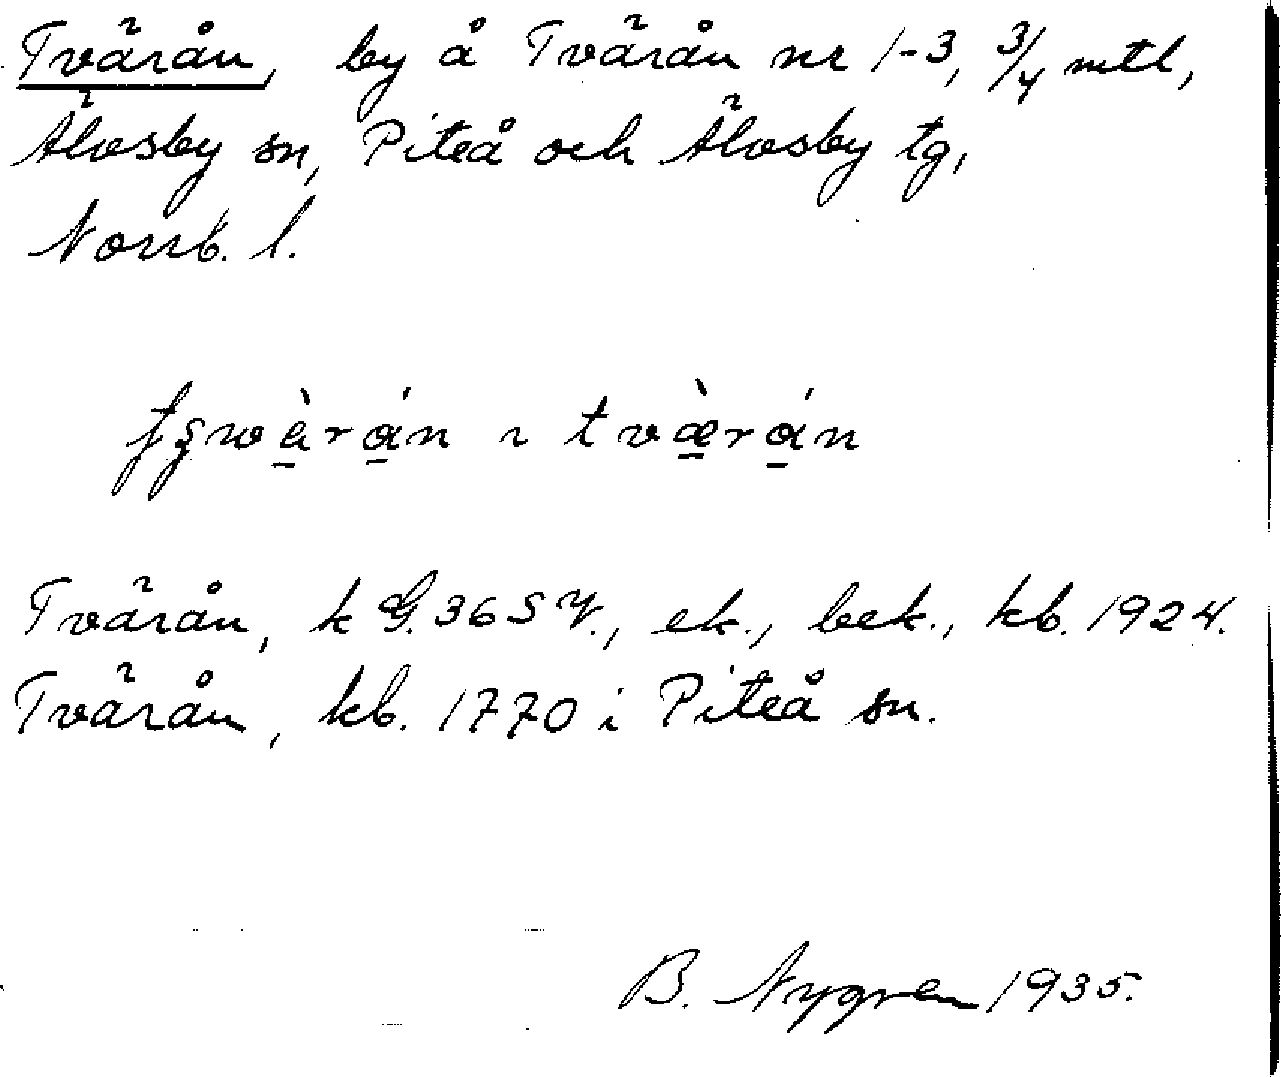 Tvärån, by å Tvärån nr 1-3, 3/4 mtl,
Älvsby sn, Piteå och Älvsby tg,
Norrb. l.
tvæ̀rán
Tvärån, k G. 36 S V., ek., bek., kb. 1924.
Tvärån, kb. 1770 i Piteå sn.
B. Nygren 1935.